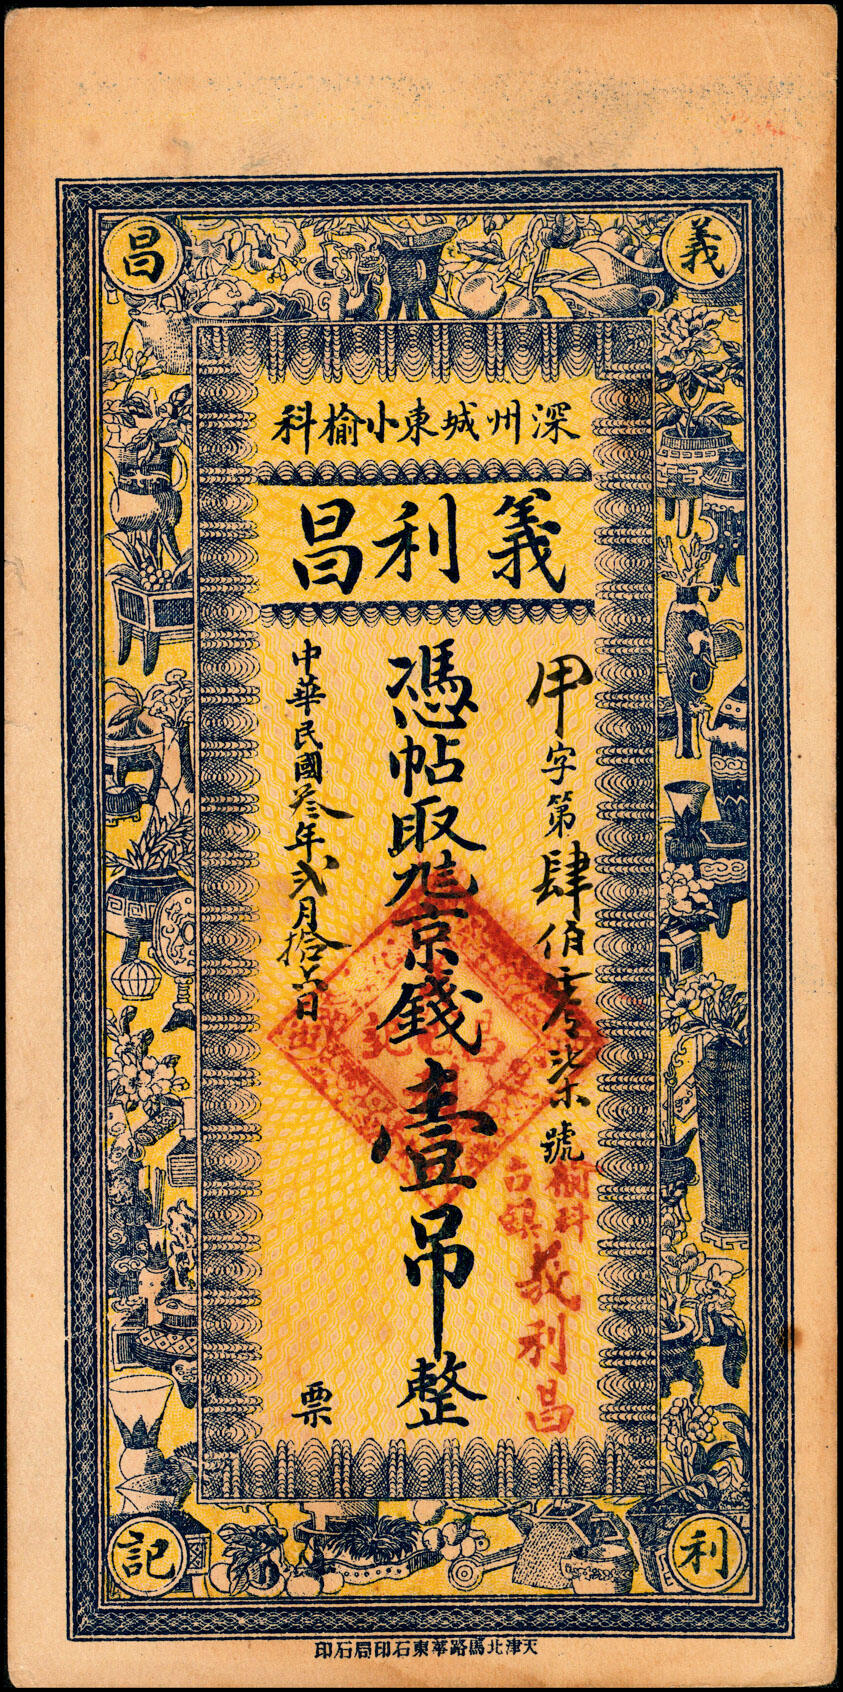 義
昌
利
記
深州城東小榆科
義利昌
甲字第肆佰零柒號
憑帖取九八京錢壹吊整
中華民國叁年弍月拾六日
票
榆科
義利昌
天津北馬路華東石印局石印